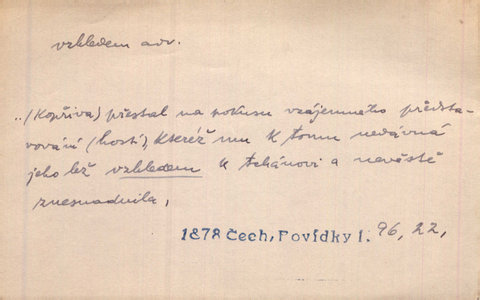 vzhledem adv.
..(Kopřiva) přestal na pokusu vzájemného předsta-
vování (hostí), kteréž mu k tomu nedávná
jeho lež vzhledem k tchánovi a nevěstě
znesnadnila,
1878 Čech, Povídky I. 96, 22,